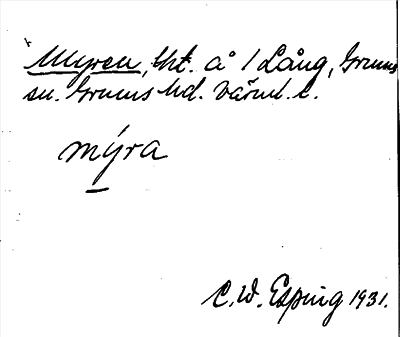 Myren, tht. å /Lång, Grums
sn. Grums hd. Värml. l.
mýra
C. W. Esping 1931.